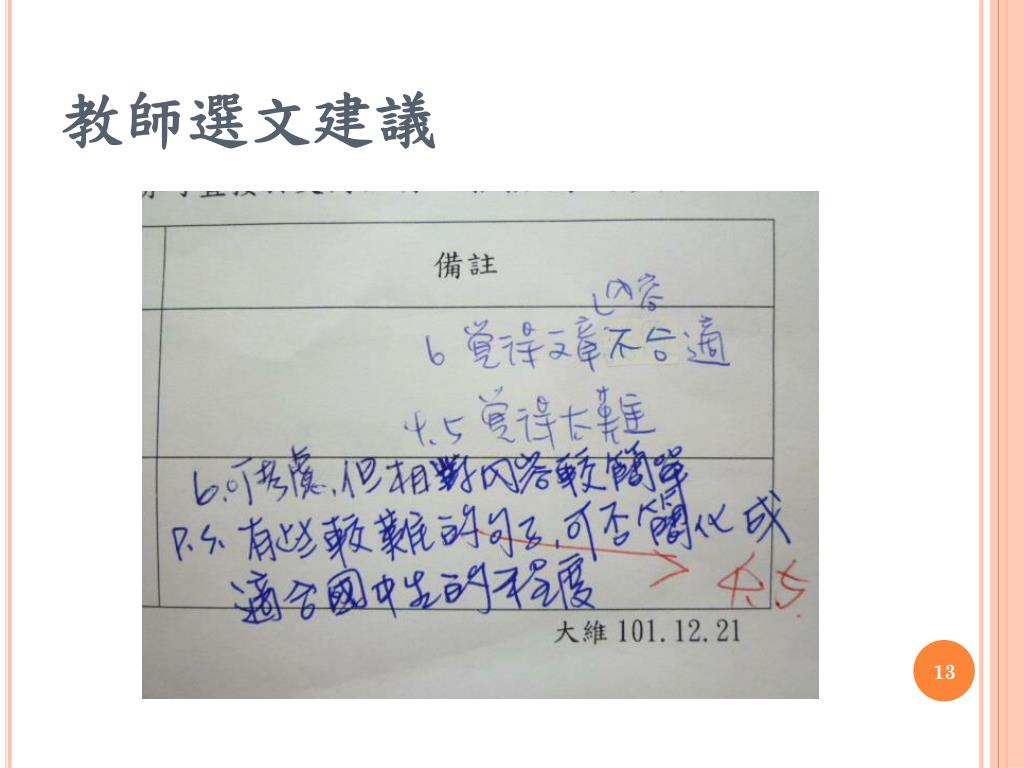 教師選文建議
備註
內容
6 覺得文章不合適
4.5 覺得太難
6.可考慮,但相對內容較簡單
P.S. 有些較難的句子,可否簡化成
適合國中生的程度
4.5.
大維 101.12.21
13